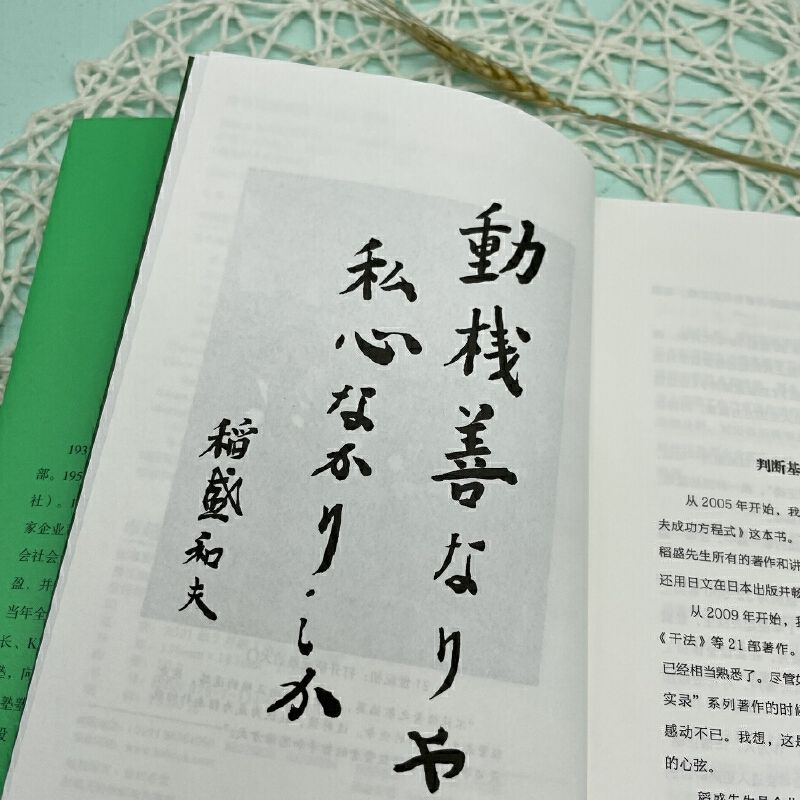 193
部。195
社）。1
家企业
会社会
盈，并
当年全
长、K
塾，向
設
動機善なりや
私心なかりしか
稲盛和夫
判断基
从 2005 年开始，我
夫成功方程式》这本书。
稻盛先生所有的著作和讲
还用日文在日本出版并畅
从 2009 年开始，我
《干法》等 21 部著作。
已经相当熟悉了。尽管如
实录”系列著作的时候
感动不已。我想，这是
的心弦。
稻盛先生是企业